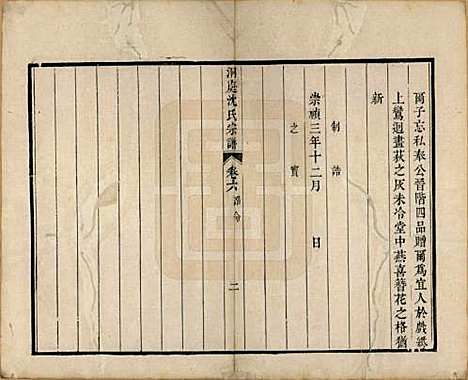 爾子忘私奉公晉階四品贈爾爲宜人於戲綵
上鸞迴畫荻之灰未冷堂中燕喜簪花之格猶
新
制誥
崇禎三年十二月 日
之寶
洞庭沈氏宗譜 卷六 誥命 二